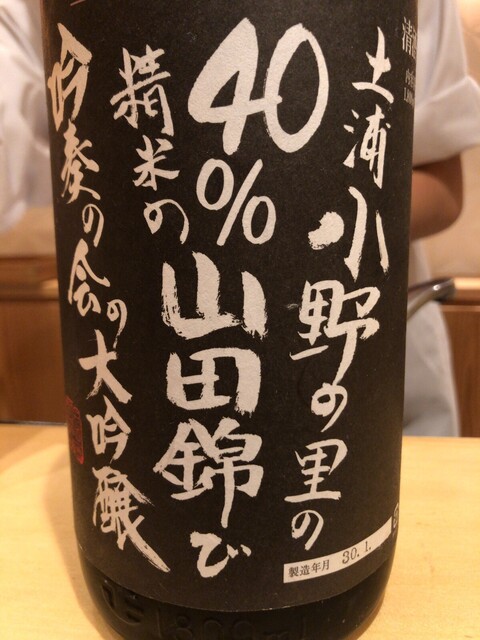 土浦小野の里の
40%山田錦び
精米の
吟奏の会の大吟醸
清酒
製造年月 30.1.